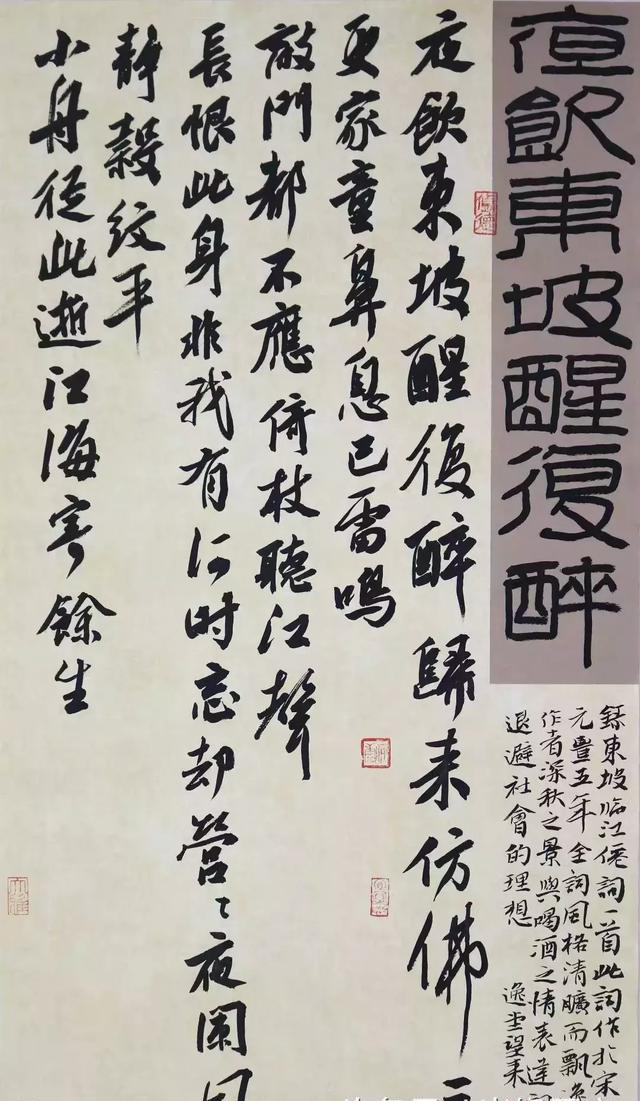 夜飲東坡醒復醉
錄東坡臨江僊詞一首此詞作於宋
元豐五年全詞風格清曠而飄逸
作者深秋之景與喝酒之情表達
退避社會的理想
夜飲東坡醒復醉歸来仿佛
更家童鼻息已雷鳴
敲門都不應倚杖聽江聲
長恨此身非我有何时忘却營〻夜闌
静縠纹平
小舟從此逝江海寄餘生